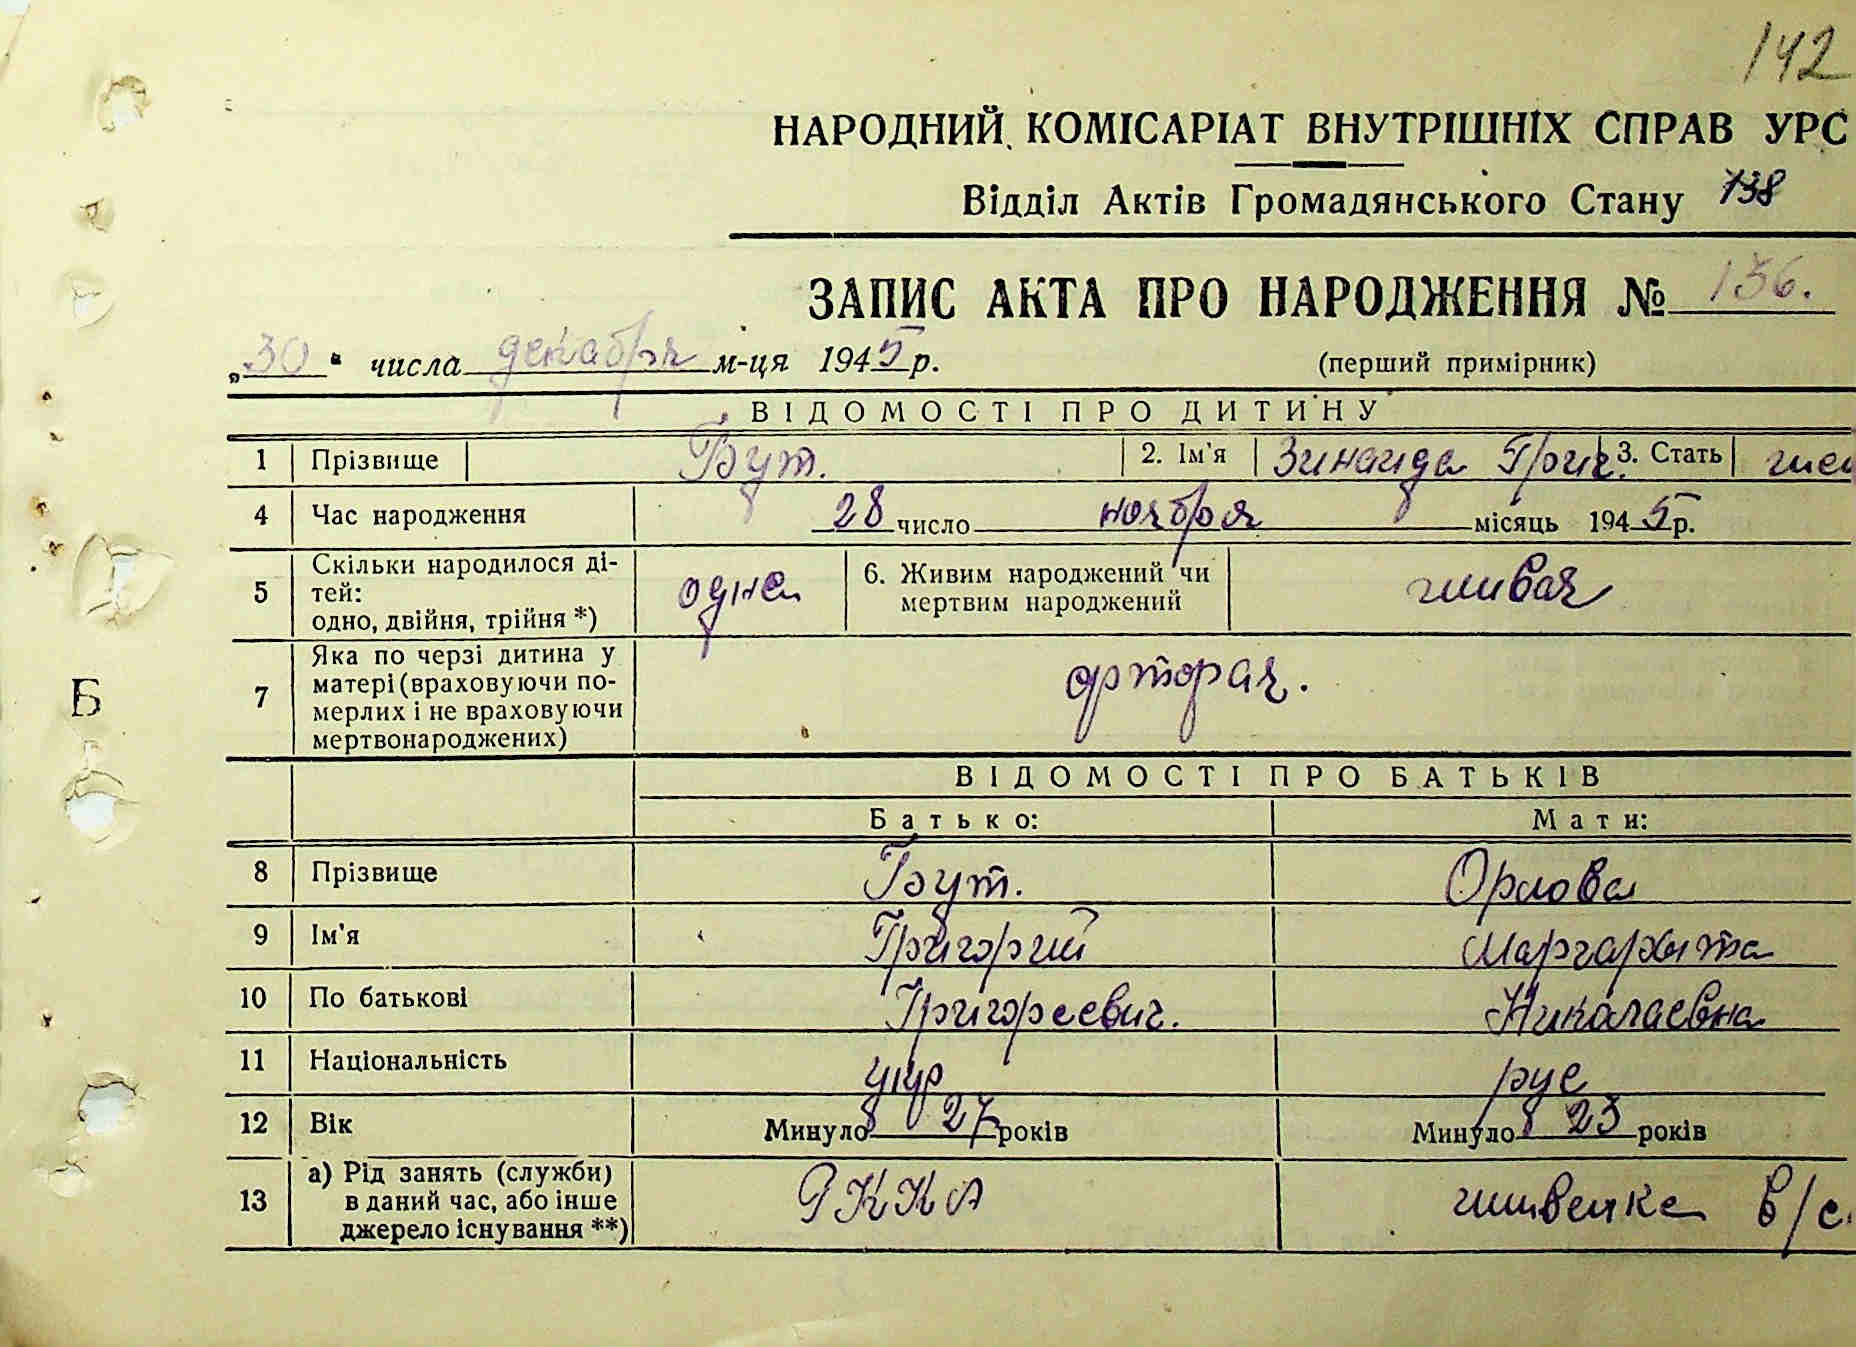 142
НАРОДНИЙ КОМІСАРІАТ ВНУТРІШНІХ СПРАВ УРС
Відділ Актів Громадянського Стану 738
ЗАПИС АКТА ПРО НАРОДЖЕННЯ № 136.
„30“ числа декабря м-ця 1945 р. (перший примірник)
ВІДОМОСТІ ПРО ДИТИНУ
1 Прізвище Бут. 2. Ім'я Зинаида Григ. 3. Стать жен
4 Час народження 28 число ноября місяць 1945 р.
5 Скільки народилося ді-
тей:
одно, двійня, трійня *) одна 6. Живим народжений чи
мертвим народжений живая
7 Яка по черзі дитина у
матері (враховуючи по-
мерлих і не враховуючи
мертвонароджених) фторая.
Б
ВІДОМОСТІ ПРО БАТЬКІВ
Батько: Мати:
8 Прізвище Бут. Орлова
9 Ім'я Григорий Маргарита
10 По батькові Григореевич. Николаевна
11 Національність укр рус
12 Вік Минуло 27 років Минуло 23 років
13 а) Рід занять (служби)
в даний час, або інше
джерело існування **) РККА швейка в/с.